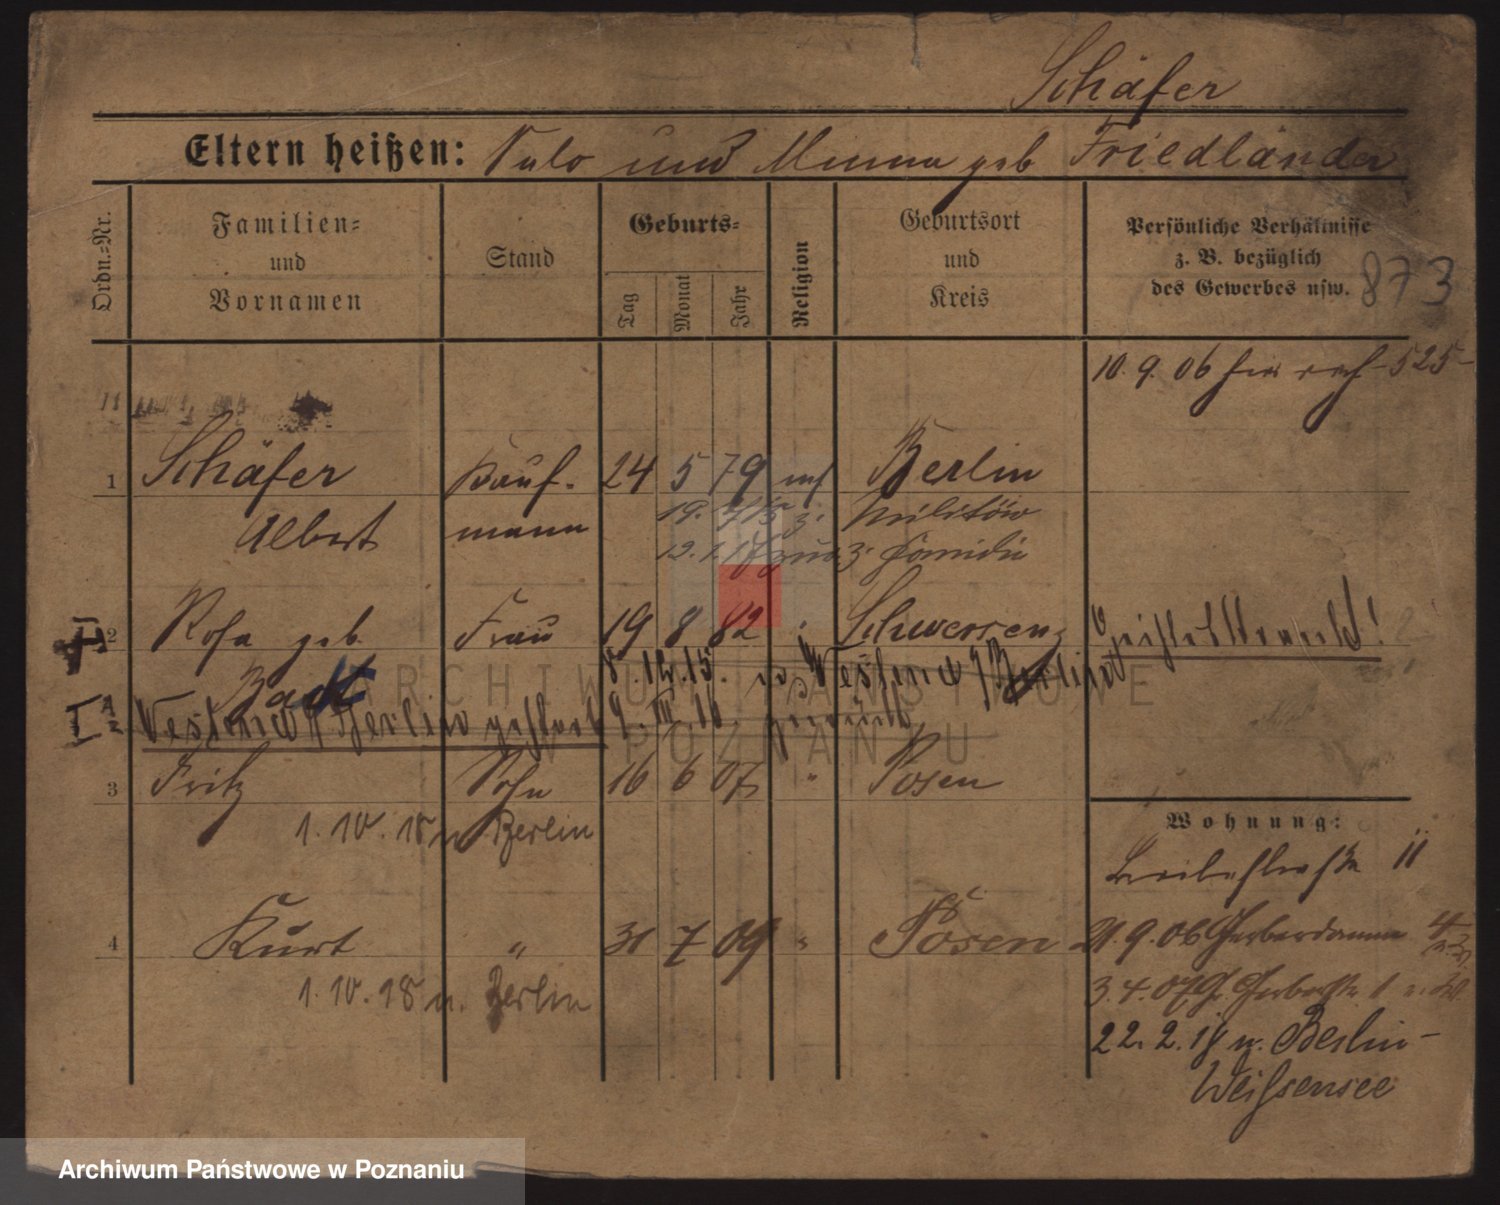 Schäfer
Eltern heißen: Salo und Minna geb Friedländer
Ordn.-Nr.
Familien-
und
Vornamen
Stand
Geburts-
Tag
Monat
Jahr
Religion
Geburtsort
und
Kreis
Persönliche Verhältnisse
z. B. bezüglich
des Gewerbes usw.
873
10. 9. 06 525-
1 Schäfer Kauf- 24 5 79 Berlin
Albert mann 19. z. Militär
12. 1. 17 z. Familie
2 Rosa geb. Frau 19 8 82 " Schwersenz Geisteskrank!
8. 12. 15. Westend Berlin
Westend Berlin 9. III. 16. zurück
3 Fritz Sohn 16 6 07 " Posen
1. 10. 18 n. Berlin
Wohnung:
11
4 Kurt " 31 7 09 " Posen
21. 9. 06 Gerberdamm
1. 10. 18 n. Berlin
3. 4. 07 Gerberstr 1
22. 2. 18 n. Berlin-
Weißensee
ARCHIWUM PAŃSTWOWE
W POZNANIU
Archiwum Państwowe w Poznaniu